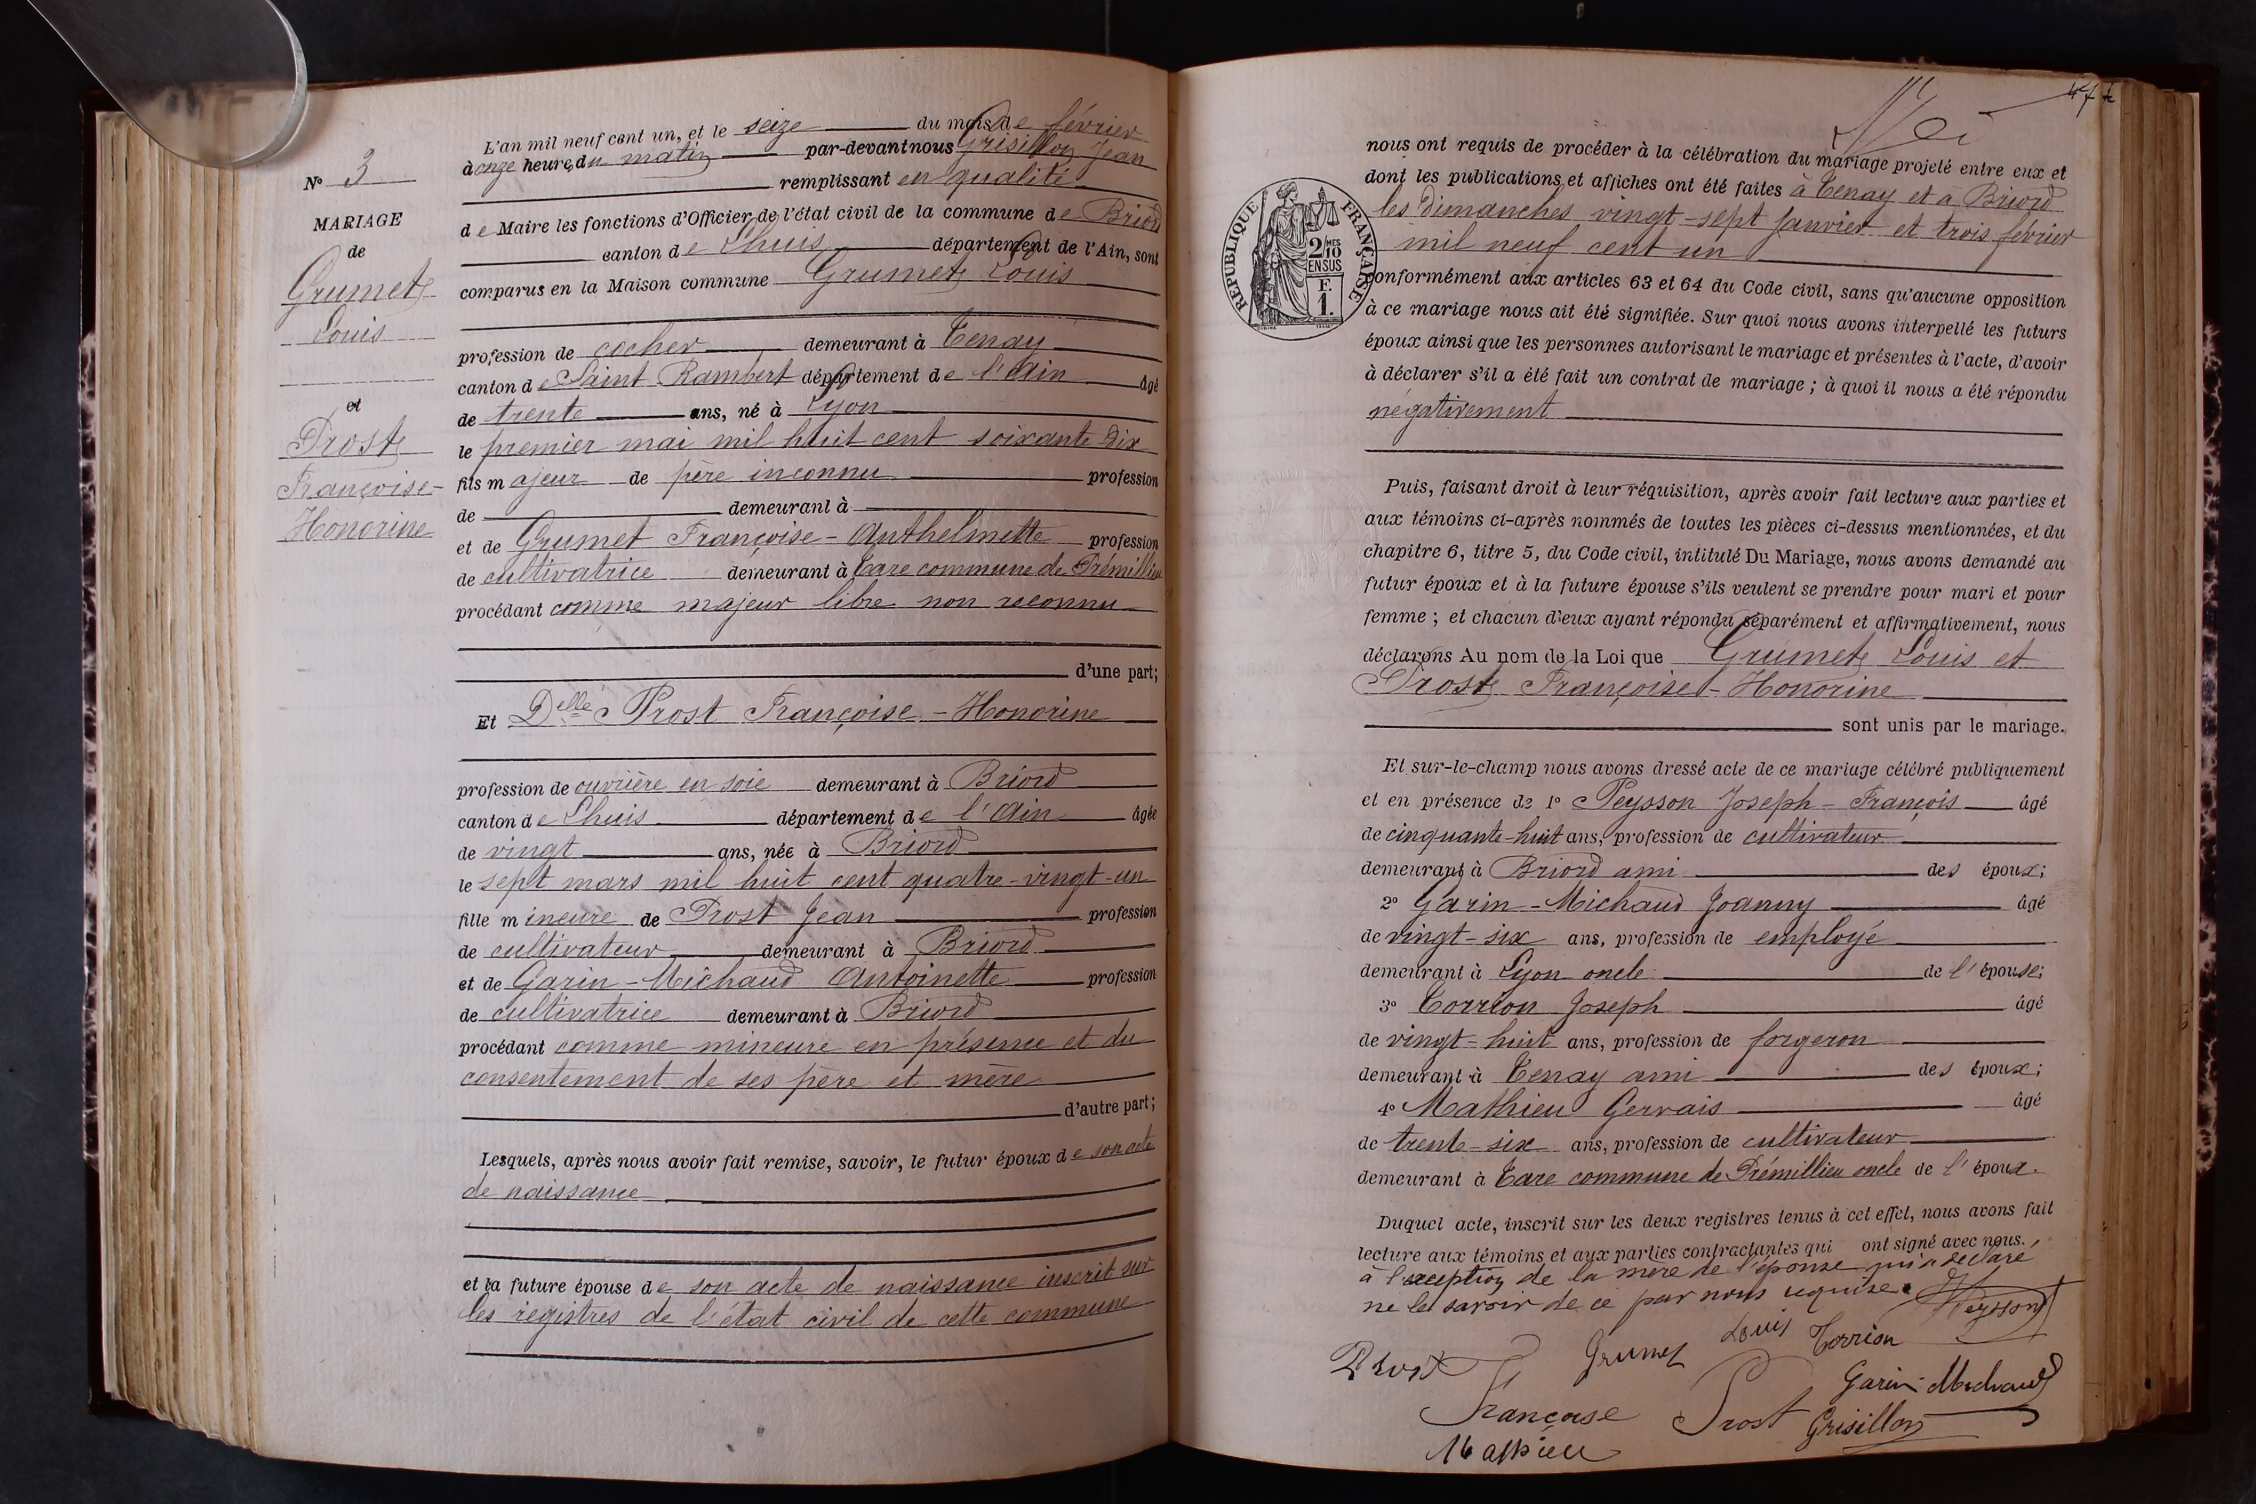 N° 3
MARIAGE
de
Grumet
Louis
et
Prost
Françoise-
Honorine
L'an mil neuf cent un, et le seize du mois de février
à onze heures du matin par-devant nous Grisillon Jean
remplissant en qualité
de Maire les fonctions d'Officier de l'état civil de la commune de Briord
canton de Lhuis département de l'Ain, sont
comparus en la Maison commune Grumet Louis
profession de cocher demeurant à Tenay
canton de Saint Rambert département de l'Ain âgé
de trente ans, né à Lyon
le premier mai mil huit cent soixante dix
fils majeur de père inconnu profession
de demeurant à
et de Grumet Françoise-Anthelmette profession
de cultivatrice demeurant à Tare commune de Prémillieu
procédant comme majeur libre non reconnu
d'une part;
Et Delle Prost Françoise-Honorine
profession de ouvrière en soie demeurant à Briord
canton de Lhuis département de l'Ain âgée
de vingt ans, née à Briord
le sept mars mil huit cent quatre-vingt-un
fille mineure de Prost Jean profession
de cultivateur demeurant à Briord
et de Garin-Michaud Antoinette profession
de cultivatrice demeurant à Briord
procédant comme mineure en présence et du
consentement de ses père et mère
d'autre part;
Lesquels, après nous avoir fait remise, savoir, le futur époux de son acte
de naissance
et la future épouse de son acte de naissance inscrit sur
les registres de l'état civil de cette commune
nous ont requis de procéder à la célébration du mariage projeté entre eux et
dont les publications et affiches ont été faites à Tenay et à Briord
les dimanches vingt-sept janvier et trois février
mil neuf cent un
RÉPUBLIQUE FRANÇAISE
2/10
EN SUS
F.
1.
conformément aux articles 63 et 64 du Code civil, sans qu'aucune opposition
à ce mariage nous ait été signifiée. Sur quoi nous avons interpellé les futurs
époux ainsi que les personnes autorisant le mariage et présentes à l'acte, d'avoir
à déclarer s'il a été fait un contrat de mariage ; à quoi il nous a été répondu
négativement
Puis, faisant droit à leur réquisition, après avoir fait lecture aux parties et
aux témoins ci-après nommés de toutes les pièces ci-dessus mentionnées, et du
chapitre 6, titre 5, du Code civil, intitulé Du Mariage, nous avons demandé au
futur époux et à la future épouse s'ils veulent se prendre pour mari et pour
femme ; et chacun d'eux ayant répondu séparément et affirmativement, nous
déclarons Au nom de la Loi que Grumet Louis et
Prost Françoise-Honorine
sont unis par le mariage.
Et sur-le-champ nous avons dressé acte de ce mariage célébré publiquement
et en présence de 1° Peysson Joseph-François âgé
de cinquante-huit ans, profession de cultivateur
demeurant à Briord ami des époux;
2° Garin-Michaud Joanny âgé
de vingt-six ans, profession de employé
demeurant à Lyon oncle de l'épouse;
3° Torrion Joseph âgé
de vingt-huit ans, profession de forgeron
demeurant à Tenay ami des époux;
4° Mathieu Gervais âgé
de trente-six ans, profession de cultivateur
demeurant à Tare commune de Prémillieu oncle de l'époux.
Duquel acte, inscrit sur les deux registres tenus à cet effet, nous avons fait
lecture aux témoins et aux parties contractantes qui ont signé avec nous.
à l'exception de la mère de l'épouse qui a déclaré
ne le savoir de ce par nous requise. Peysson
Prost Grumet Louis Torrion
Garin-Michaud
Françoise Prost Grisillon
Mathieu